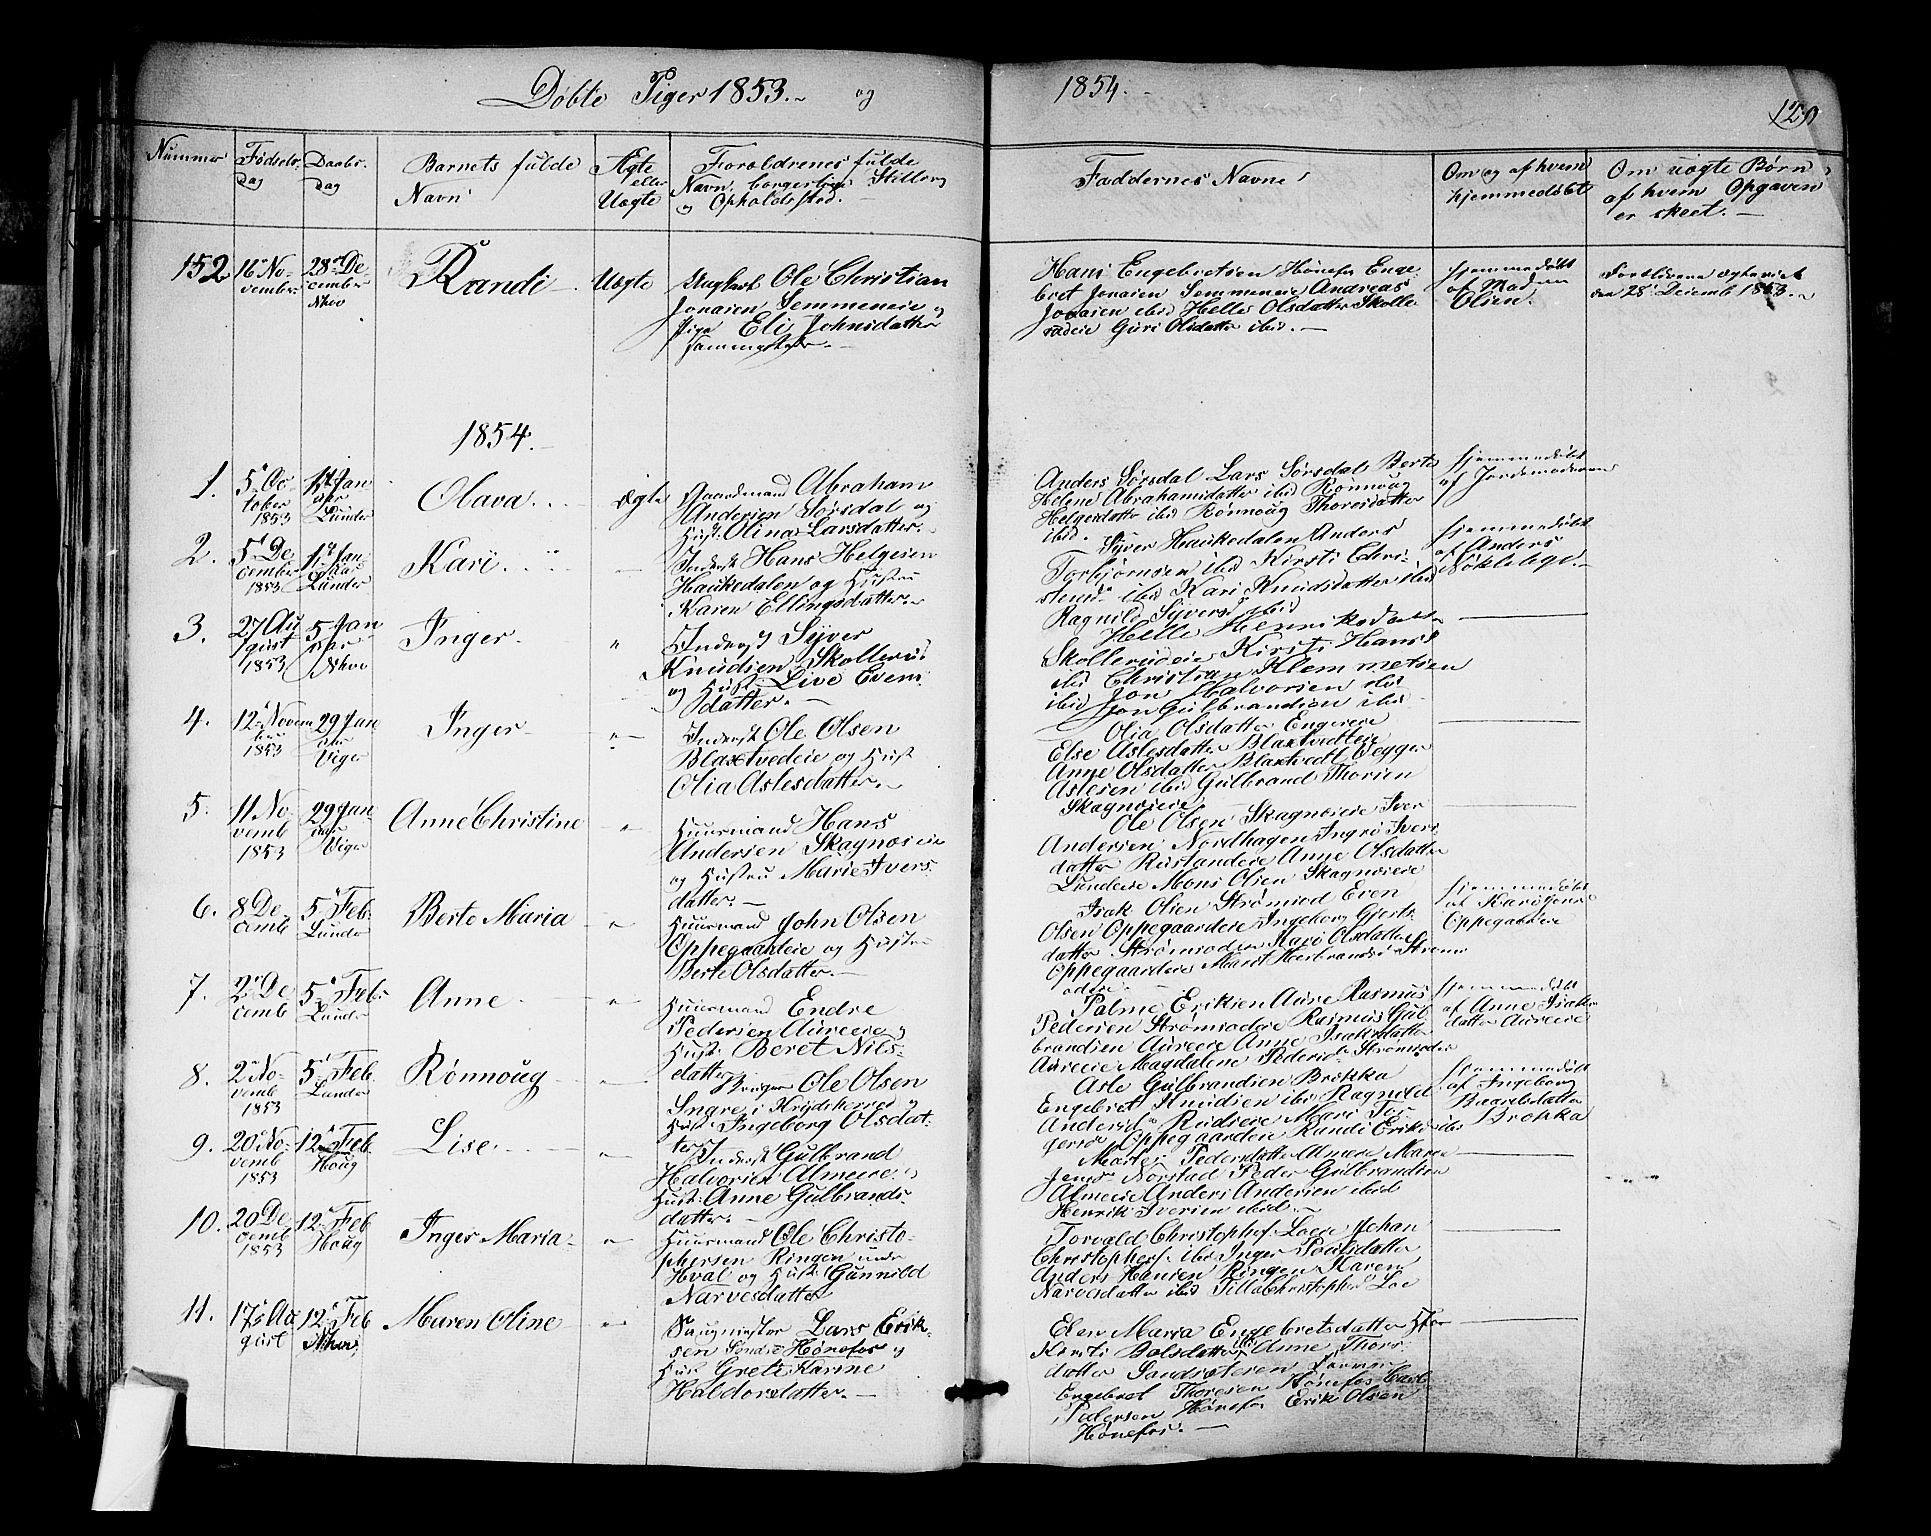 Døbte Piger 1853. og
1854.
120
Nummer
Fødsels-
Dag
Daabs-
Dag
Barnets fulde
Navn
Ægte
eller
Uægte
Forældrenes fulde
Navn, borgerlige Stilling
og Opholdssted.
Faddernes Navne
Om og af hvem
hjemmedøbt
Om uægte Børn
af hvem Opgaven
er skeet.
152
16 No-
vember
28 De-
cember
Nhov
Randi
Uægte
Ungkarl Ole Christian
Jonasen Semmeneie og
Pige Eli Johnsdatter
sammesteds
Hans Engebretsen Hønefos Enge-
bret Jonasen Semmeneie Andreas
Jonasen ibid Helle Olsdatter Skolle-
rudeie Guri Olsdatter ibid.
Hjemmedøbt
af Madam
Olsen.
Forældrene ægteviet
den 28 Decemb 1853.
1854.
1.
5 Oc-
tober
1853
1 Jan
uar
Lunder
Olava
ægte
Gaardmand Abraham
Andersen Sørsdal og
Hust. Olina Larsdatter.
Anders Sørsdal Lars Sørsdal Berte
Helene Abrahamsdatter ibid Rønnoug
Helgesdatter ibid Rønnoug Thoresdatter
ibid.
Hjemmedøbt
af Jordemoderen
2.
5 De-
cember
1853
1 Jan
uar
Lunder
Kari
Inderst Hans Helgesen
Haukedalen og Hustru
Karen Ellingsdatter
Syver Haukedalen Anders
Torbjørnsen ibid Kirsti Chri-
stensd ibid Kari Knudsdatter ibid
Ragnild Syversd ibid
Hjemmedøbt
af Anders
Bøklebye.
3.
27 Au
gust
1853
5 Jan
uar
Nhov
Inger
Inderst Syver
Knudsen Skollerud
og Hust. Live Evens
datter.
Helle Henriksdatter
Skollerudeie Kirsti Hansd
ibid Christian Klemmetsen
ibid Jon Halvorsen ibid
Jon Gulbrandsen ibid
4.
12 Novem
ber
1853
29 Jan
uar
Viger
Inger
Inderst Ole Olsen
Blaxtvedeie og Hust
Olia Aslesdatter.
Olia Olsdatter Engereie
Else Aslesdatter Blaxtvedteie
Anne Olsdatter Blaxtvedt Vegger
Aslesen ibid Gulbrand Thorsen
Skagnæseie
5.
11 No-
vemb
1853
29 Jan-
uar
Viger
Anne Christine
Huusmand Hans
Andersen Skagnæseie
og Hustru Marie Ivers
datter.
Ole Olsen Skagnæseie Iver
Andersen Nordhagen Ingri Ivers
datter Rustandeie Anne Olsdatter
Lundeie Mons Olsen Skagnæseie
6.
8 De-
cemb
5 Feb.
Lunder
Berte Maria
Huusmand John Olsen
Oppegaardeie og Hustru
Berte Olsdatter.
Isak Olsen Strømsod Even
Olsen Oppegaardeie Ingeborg Gjerts-
datter Strømsodeie Kari Olsdatter
Oppegaardeie Marit Herbrandsd Strøms
odeie.
Hjemmedøbt
Oppegaardeie
7.
2 De
cemb
5 Feb.
Lunder
Anne
Huusmand Endre
Pedersen Aureeie og
Hust. Beret Nils-
datter.
Palme Eriksen Aure Rasmus
Pedersen Strømsodeie Rasmus Gul
brandsen Aureeie Anne Isaksdatter
Aureeie Magdalene Pedersd Strømsodeie
Hjemmedøbt
af Anne Isaks
datter Aureeie
8.
2 No-
vemb
1853
5 Feb.
Lunder
Rønnoug
Bruger Ole Olsen
Sngre i Krydsherred og
Hust Ingeborg Olsdat-
ter
Asle Gulbrandsen Brokka
Engebret Knudsen ibid Ragnild
Andersd Rudseie Mari Tor-
gersd Oppegaarden Randi Eriksd ibid
Hjemmedøbt
af Ingeborg
Baardsdatter
Brokka
9.
20 No-
vemb
1853
12 Feb.
Houg
Lise
Inderst Gulbrand
Halvorsen Almeie og
Hust. Anne Gulbrands-
datter.
Marte Pedersdatter Almeie Maren
Jensd Norstad Peder Gulbrandsen
Almeie Anders Andersen ibid
Henrik Iversen ibid.
10.
20 De
cemb
1853
12 Feb
Houg
Inger Maria
Huusmand Ole Christo-
phersen Ringen under
Hval og Hust Gunnild
Narvesdatter
Torvald Christophers Loeie Johan
Christophers ibid Inger Poulsdatter
Anders Hansen Ringen Maren
Narvesdatter ibid Silla Christophersd Loe
11.
17 Au
gust
12 Feb
Nhov
Maren Oline
Saugmester Lars Erik-
sen Søndre Hønefos og
Hust Grete Karine
Haldorsdatter.
Elen Maria Engebretsdatter
Kirsti Bolsdatter ibid Anne Thors-
datter Sandsæteren
Engebret Thoresen Hønefos Carl
Pedersen Hønefos Erik Olsen
Hønefos.